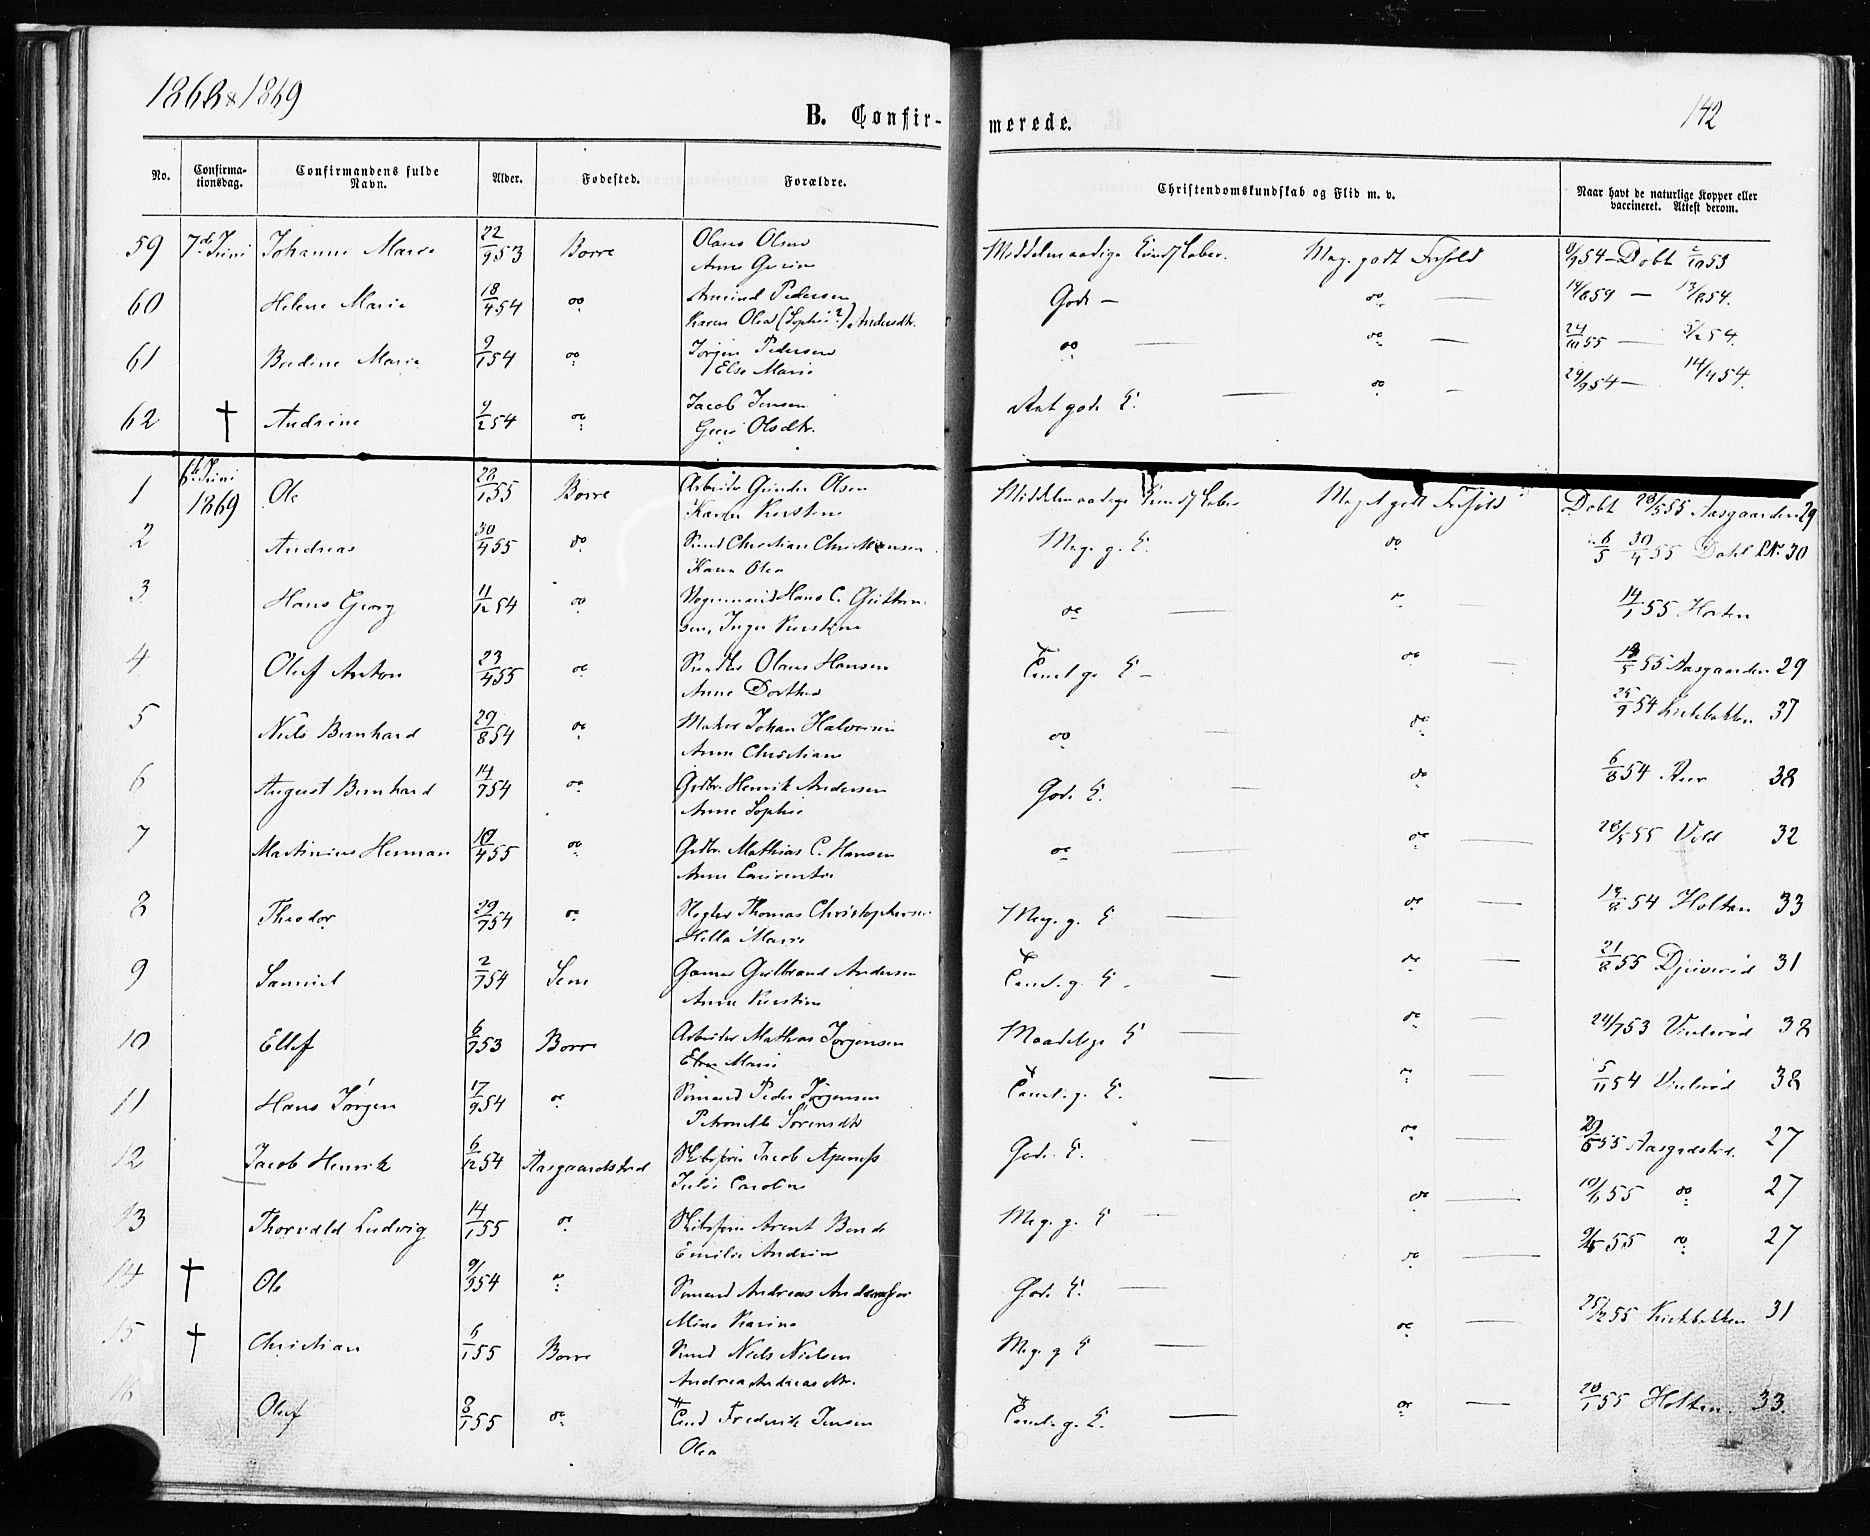 1868 & 1869
B. Confir-
merede.
142
No.
Confirma-
tionsdag.
Confirmandens fulde
Navn.
Alder.
Fødested.
Forældre.
Christendomskundskab og Flid m. v.
Naar havt de naturlige Kopper eller
vaccineret. Attest derom.
59 7de Juni Johanne Marie 22/9 53 Borre Olaus Olsen Middelmaadige Kundskaber. Meg. godt Forhold 8/9 54 – Døbt 2/10 53
Anne
60 Helene Marie 18/4 54 do Amund Pedersen Gode – do — 14/6 59 — 13/8 54.
Karen Olea (Sophie?) Andersdtr.
61 Bredine Marie 9/1 54 do Jørgen Pedersen do do — 24/10 55 — 5/2 54.
Else Marie
62 † Andrine 9/2 54 do Jacob Jensen Ret gode K. — do — 29/9 54 — 14/4 54.
Olsdtr.
1 6te Juni 1869 Ole 28/1 55 Borre Arbeider Gunder Olsen Middelmaadige Kundskaber Meget godt Forhold Døbt 28/5 55 Aasgaarden 29
Karen Kirstine
2 Andreas 30/4 55 do Christian Christensen Meg. g. K. do 6/5 30/4 55 30
Karen Olea
3 Hans Georg 11/12 54 do Hans C. do — do — 14/1 55 Horten
sen, Inger Kirstine
4 Oluf Anton 23/4 55 do Olaus Hansen Taml. g. K – do — 13/5 55 Aasgaarden 29
Anne Dorthea
5 Niels Bernhard 29/8 54 do Johan Halvorsen do — do 25/9 54 Kirkebakken 37
Anne Christiane
6 August Bernhard 14/7 54 do Gdbr. Henrik Andersen Gode K. — do 6/8 54 38
Anne Sophie
7 Martinius Herman 10/4 55 do Gdbr. Mathias C. Hansen do — do — 28/5 55 Vold 32
Anne Laurentze
8 Theodor 29/7 54 do Thomas Christophersen Meg. g. K — do — 13/8 54 Holtan 33
Marie
9 Samuel 2/7 54 Sem Gulbrand Andersen Taml. g. K. — do — 21/8 55 31
Anne Kirstine
10 Ellef 6/7 53 Borre Arbeider Mathias Jørgensen Maadelige K — do — 24/7 53 Vinlerød 38
Elen Marie
11 Hans Jørgen 17/9 54 do Sømand Peder Jørgensen Taml. g. K. — do — 5/11 54 Vinlerød 38
Petronelle Sørensdtr
12 Jacob Henrik 6/12 54 Aasgaardstrd Skibsfører Jacob Gode K. — do — 20/5 55 Aasgrdstrd. 27
Julie Caroline
13 Thorvald Ludvig 14/1 55 do Skibsfører Arent Meg. g. K — do — 10/6 55 do 27
Emilie Andrine
14 † Ole 9/9 54 do Sømand Andreas Gode K. — do — 9/5 55 do 27
Mine Karine
15 † Christian 6/1 55 Borre Niels Nielsen Meg. g K — do — 25/2 55 Kirkebakken 31
Andrea Andreasdtr.
16 Oluf 8/1 55 do Frederik Jensen Taml. g. K. — do — 28/1 55 Holtan. 33.
Olea